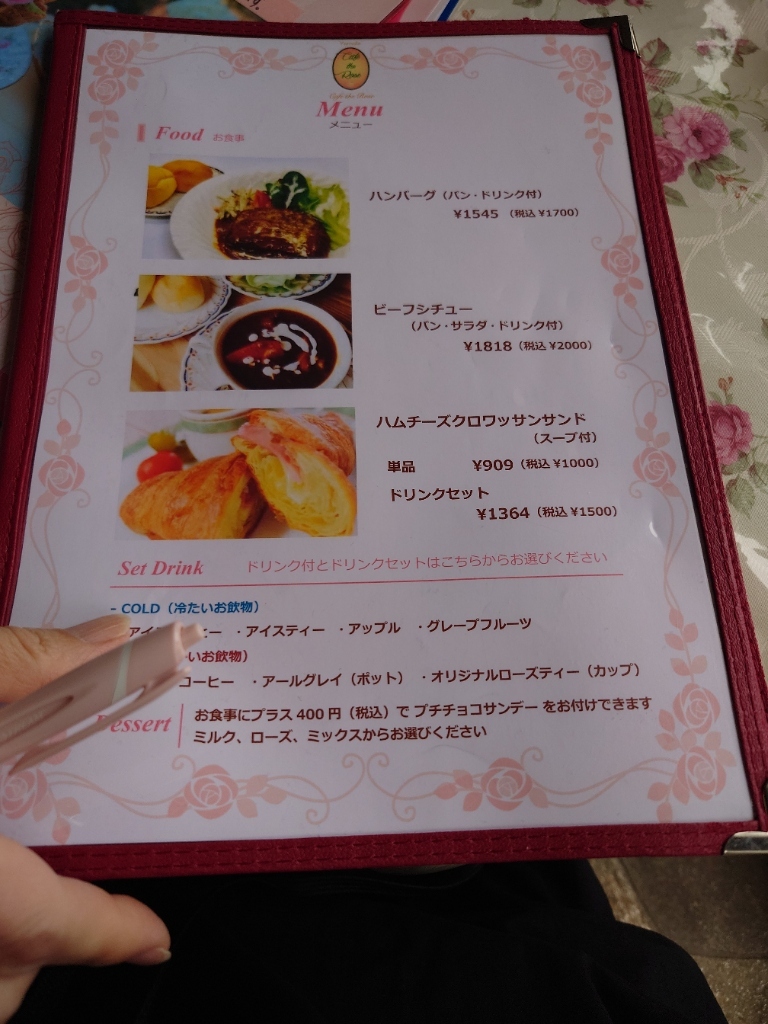 Café
the
Rose
Menu
メニュー
Food お食事
ハンバーグ（パン・ドリンク付）
¥1545 （税込 ¥1700）
ビーフシチュー
（パン・サラダ・ドリンク付）
¥1818（税込 ¥2000）
ハムチーズクロワッサンサンド
（スープ付）
単品 ¥909（税込 ¥1000）
ドリンクセット
¥1364（税込 ¥1500）
Set Drink ドリンク付とドリンクセットはこちらからお選びください
- COLD（冷たいお飲物）
・アイスティー ・アップル ・グレープフルーツ
いお飲物）
コーヒー ・アールグレイ（ポット） ・オリジナルローズティー（カップ）
Dessert お食事にプラス 400 円（税込）で プチチョコサンデー をお付けできます
ミルク、ローズ、ミックスからお選びください